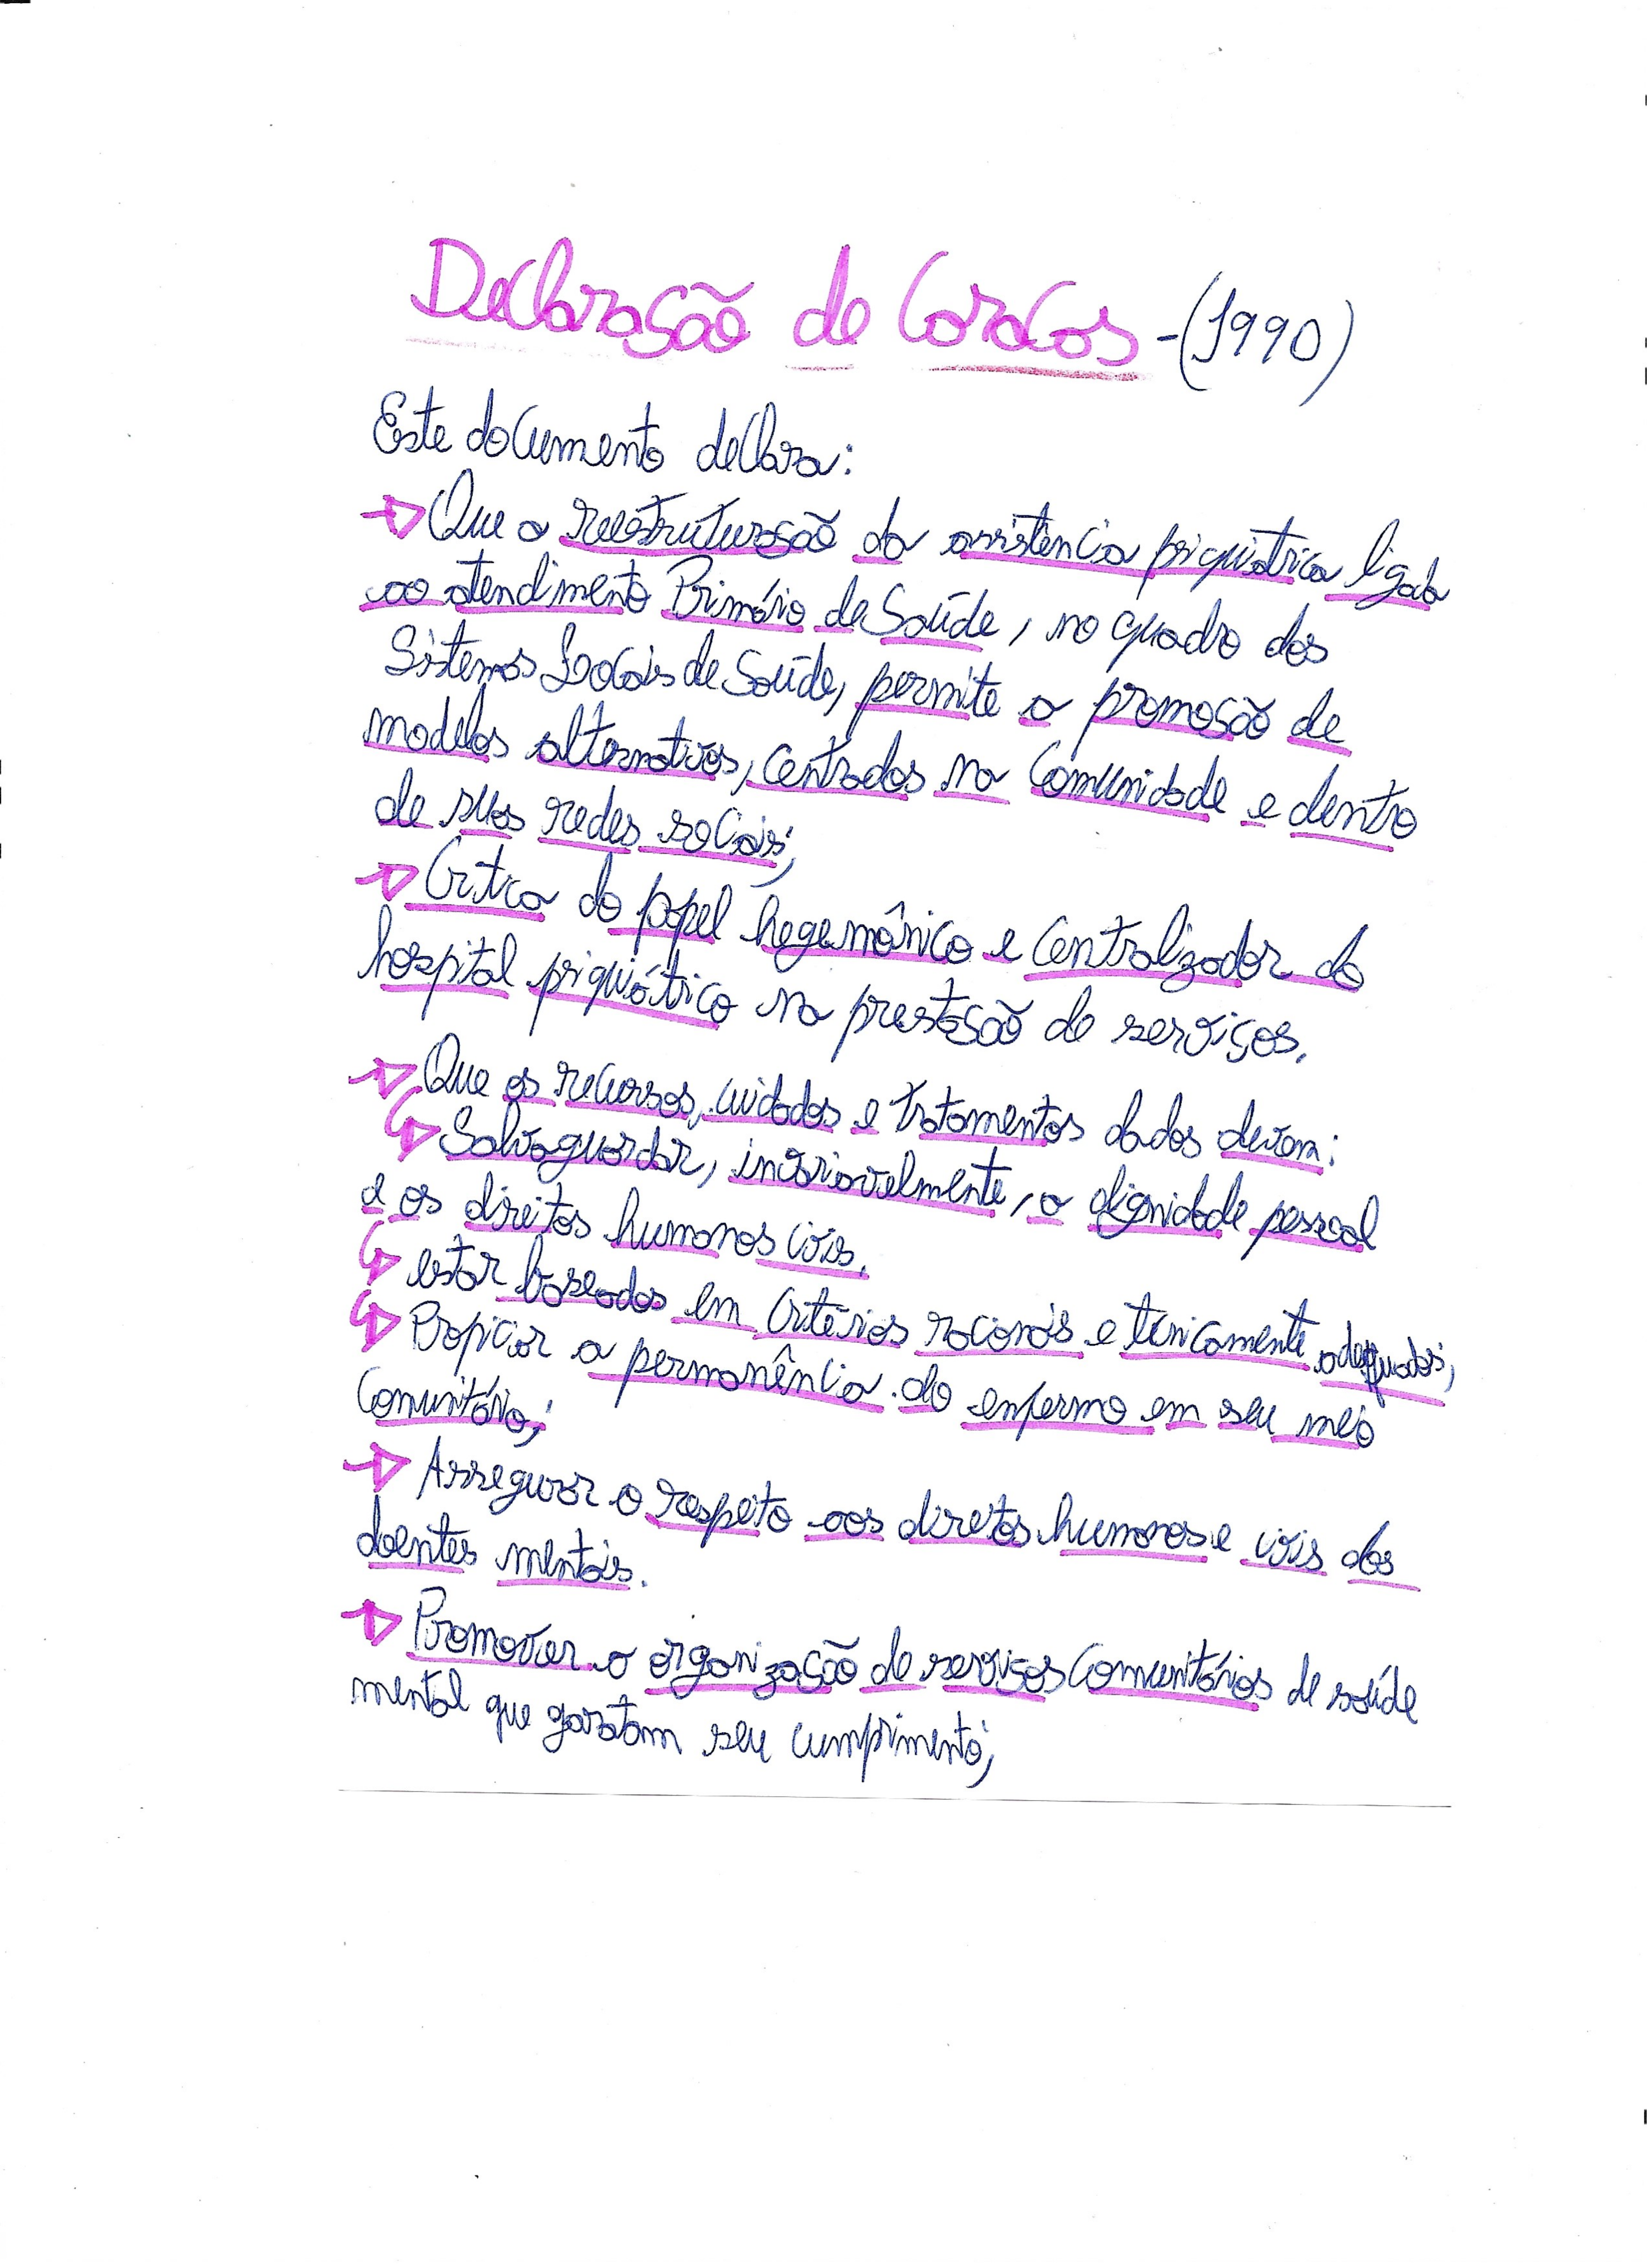 Declaração de Caracas - (1990)
Este documento declara:
Que a reestruturação da assistência psiquiátrica ligada
ao atendimento Primário da Saúde, no quadro dos
Sistemas Locais de Saúde, permite a promoção de
modelos alternativos, centrados na comunidade e dentro
de suas redes sociais;
Critica do papel hegemônico e centralizador do
hospital psiquiátrico na prestação de serviços.
Que os recursos, cuidados e tratamentos dados devem:
Salvaguardar, invariavelmente, a dignidade pessoal
e os direitos humanos civis.
estar baseados em critérios racionais e tecnicamente adequados;
Propiciar a permanência do enfermo em seu meio
Comunitário;
Assegurar o respeito aos direitos humanos e civis dos
doentes mentais.
Promover a organização de serviços Comunitários de saúde
mental que garatam seu cumprimento;